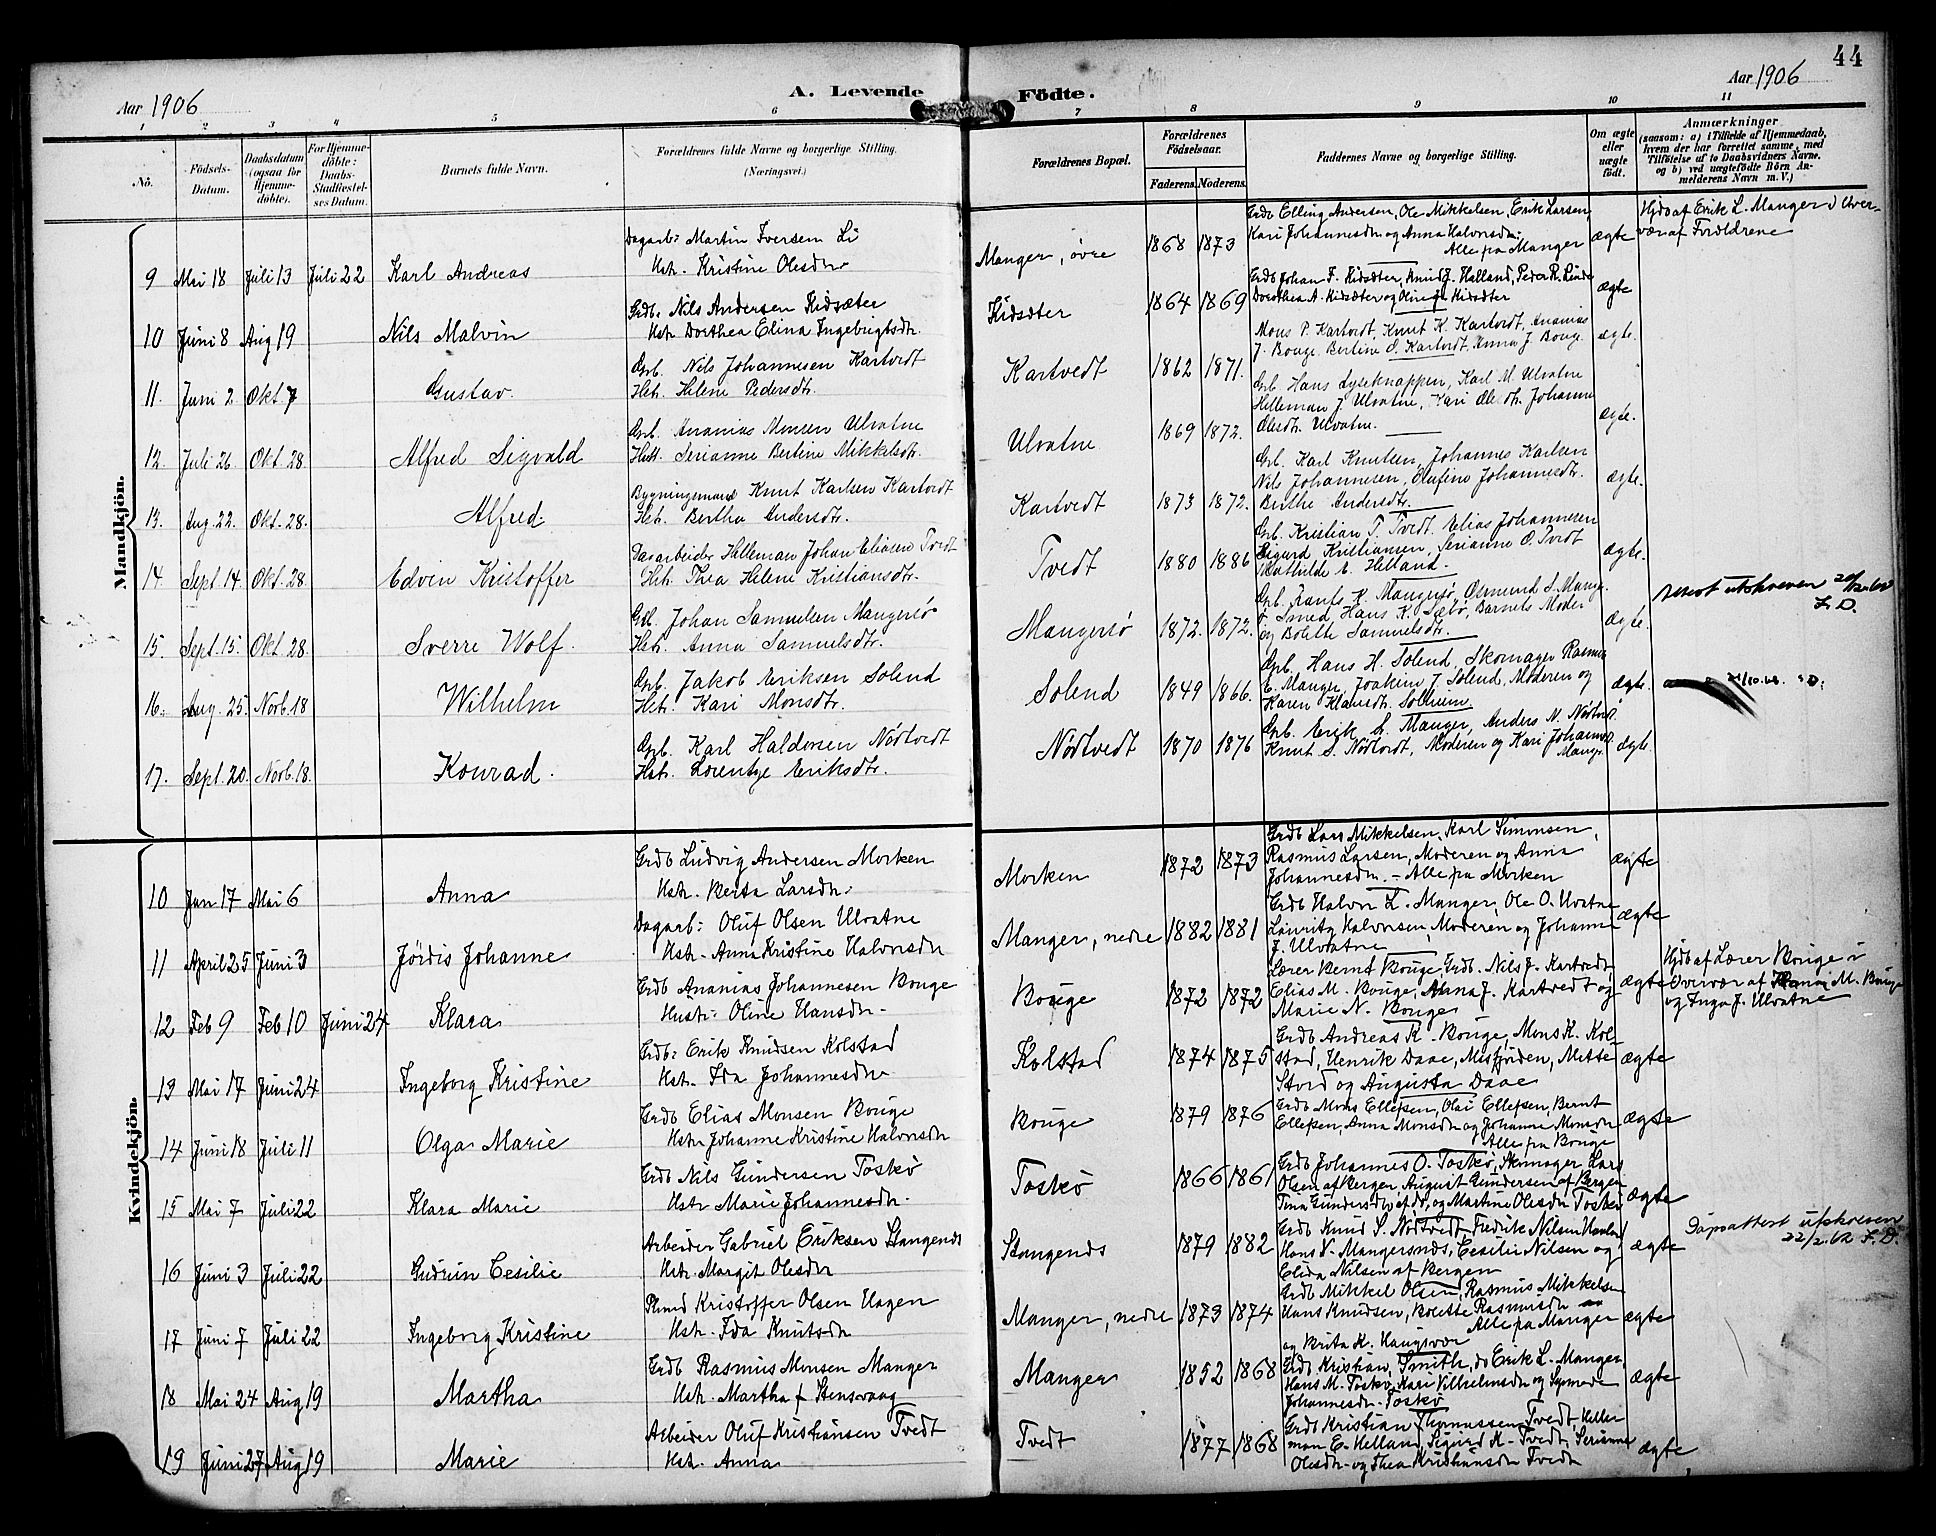 44
Aar 1906
A. Levende Födte.
Aar 1906
1 2 3 4 5 6 7 8 9 10 11
No.
Födsels-Datum.
Daabsdatum (ogsaa for Hjemme-döbte).
For Hjemme-döbte: Daabs-Stadfæstel-ses Datum.
Barnets fulde Navn.
Forældrenes fulde Navne og borgerlige Stilling.
(Næringsvei.)
Forældrenes Bopæl.
Forældrenes Födselsaar.
Faderens. Moderens.
Faddernes Navne og borgerlige Stilling.
Om ægte eller uægte födt.
Anmærkninger
(saasom: a) i Tilfælde af Hjemmedaab, hvem der har forrettet samme, med Tilföielse af to Daabsvidners Navne. og b) ved uægtefödte Börn An-melderens Navn m. V.)
Mandkjön.
9 Mai 18 Juli 13 Juli 22 Karl Andreas
Dagarb: Martin Iversen Li
Hstr. Kristine Olesdtr
Manger, övre 1868 1873
Grdb Elling Andersen, Ole Mikkelsen, Erik Larsen,
Kari Johannesdtr og Anna Halvorsdtr:
Alle paa Manger
ægte
Hjdb af Erik L. Manger i Over-
vær af Forældrene
10 Juni 8 Aug 19 Nils Malvin
Grdb: Nils Andersen Kidsæter
Hstr Dorthea Elina Ingebrigtsdtr.
Kidsæter 1864 1869
Grdb Johan F. Kidsæter, Knud J. Helland, Peder R. Linde
Dorothea A. Kidsæter og Oline Kidsæter
ægte
11. Juni 2 Okt 7 Gustav.
Grb. Nils Johannesen Kartvedt
Hstr. Helene Pedersdtr.
Kartvedt 1862 1871.
Mons P. Kartvedt, Knut K. Kartvedt, Ananias
J. Bouge, Bertine S. Kartvedt, Anna J. Bouge.
ægte.
12. Juli 26 Okt. 28 Alfred Sigvald
Grb. Ananias Monsen Ulvatne
Hstr. Serianne Bertine Mikkelsdtr.
Ulvatne 1869 1872.
Grb. Hans Lyseknappen, Karl M. Ulvatne
Helleman J. Ulvatne, Kari Olesdtr. Johanne
Olesdtr. Ulvatne.
ægte.
13. Aug. 22. Okt. 28. Alfred.
Bygningsmand Knut Karlsen Kartvedt
Hstr. Bertha Andersdtr.
Kartvedt 1873 1872.
Grb. Karl Knutsen, Johannes Karlsen
Nils Johannesen, Olufine Johannesdtr.
Berthe Andersdtr.
ægte.
14. Sept. 14. Okt. 28. Edvin Kristoffer
Dagarbeider Helleman Johan Eliasen Tvedt
Hstr. Thea Helene Kristiansdtr.
Tvedt 1880 1886
Grb. Kristian T. Tvedt. Elias Johannesen
Sigurd Kristiansen, Serianne O. Tvedt
Mathilde E. Helland.
ægte.
15. Sept. 15. Okt. 28. Sverre Wolf.
Johan Samuelsen Mangersö
Hstr. Anna Samuelsdtr.
Mangersö 1872. 1872.
K. Mangersö, Osmund S. Mange
Smed, Hans K. Sæbö, Barnets Moder
og Bolette Samuelsdtr.
ægte.
utskreven
16. Aug. 25. Novb. 18 Wilhelm
Grb. Jakob Eriksen Solend
Hstr. Kari Monsdtr.
Solend 1849 1866.
Grb. Hans H. Solend, Skomager Rasmus
E. Manger, Joakim J. Solend, Moderen og
Karen Klausdtr. Solheim.
ægte.
17. Sept. 20. Novb. 18. Konrad.
Grb. Karl Haldorsen Nödtvedt
Hstr. Lorentze Eriksdtr.
Nödtvedt 1870 1876
Grb. Erik L. Manger, Anders M. Nödtvedt
Knut S. Nödtvedt, Moderen og Kari Johannesd.
Manger
ægte.
Kvindekjön.
10 Jan 17 Mai 6 Anna
Grdb Ludvig Andersen Morken
Hstr. Berta Larsdtr.
Morken 1872 1873
Grdb Lars Mikkelsen, Karl Simonsen,
Rasmus Larsen, Moderen og Anna
Johannesdtr. - Alle paa Morken
ægte
11 April 25 Juni 3 Jórdis Johanne
Dagarb: Oluf Olsen Ulvatne
Hstr. Anna Kristine Halvorsdtr
Manger, nedre 1882 1881
Grdb Halvor L. Manger, Ole O. Ulvatne
Lauritz Halvorsen, Moderen og Johanne
J. Ulvatne
ægte
12 Feb 9 Feb 10 Juni 24 Klara
Grdb Ananias Johannesen Bouge
Hustr: Oline Hansdtr.
Bouge 1872 1872
Lærer Bernt Bouge, Grdb. Nils J. Kartvedt,
Elias M. Bouge, Anna J. Kartvedt og
Marie N. Bouge
ægte
Hjdb af Lærer Bouge i
Overvær af M. Bouge
og Inga J. Ulvatne
13 Mai 17 Juni 24 Ingeborg Kristine
Grdb: Erik Knudsen Kolstad
Hstr. Ida Johannesdtr
Kolstad 1874 1875
Grdb Andreas K. Bouge, Mons K. Kol-
stad, Henrik Daae, Misfjorden, Mette
Stord og Augusta Daae
ægte
14 Juni 18 Juli 11 Olga Marie
Grdb Elias Monsen Bouge
Hstr Johanne Kristine Halvorsdtr
Bouge 1879 1876
Grdb Mons Ellefsen, Olai Ellefsen, Bernt
Ellefsen, Anna Monsdtr og Johanne Monsdtr
Alle paa Bouge
ægte
15 Mai 7 Juli 22 Klara Marie
Grdb Nils Gundersen Toskö
Hstr Marie Johannesdtr.
Toskö 1866 1861
Grdb Johannes O. Toskö, Skomager Lars
Olsen af Bergen, August Gundersen af Bergen
Tina Gundersdtr af do, og Martine Olesdtr Toskö
ægte
16 Juni 3 Juli 22 Gudrun Cesilie
Arbeider Gabriel Eriksen Stangenes
Hstr. Margit Olesdtr
Stangenes 1879 1882
Grdb Knud S. Nödtvedt, Fredrik Nilsen
Hans V. Mangersnes, Cesilie Nilsen og
Elida Nilsen af Bergen
ægte
Dåpsattest utskreven
22/2.62 F.D.
17 Juni 7 Juli 22 Ingeborg Kristine
Kristoffer Olsen Hagen
Hstr. Ida Knutsdtr
Manger, nedre 1873 1874
Grdb Mikkel Olsen, Rasmus Mikkelsen
Hans Knudsen, Bolette Rasmusdtr
Alle paa Manger
og Brita K. Haugsvær
ægte
18 Mai 24 Aug 19 Martha
Grdb Rasmus Monsen Manger
Hstr. Martha f Stensvaag
Manger 1852 1868
Grdb Kristian Smith, do Erik L. Manger,
Hans M. Toskö, Kari Vilhelmsdtr og
Johannesdtr Toskö
ægte
19 Juni 27 Aug 19 Marie
Arbeider Oluf Kristiansen Tvedt
Hstr. Anna
Tvedt 1877 1868
Grdb Kristian Thomassen Tvedt Helle
man E. Helland, Sigurd K. Tvedt, Serianne
Olesdtr og Thea Kristiansdtr Tvedt
ægte